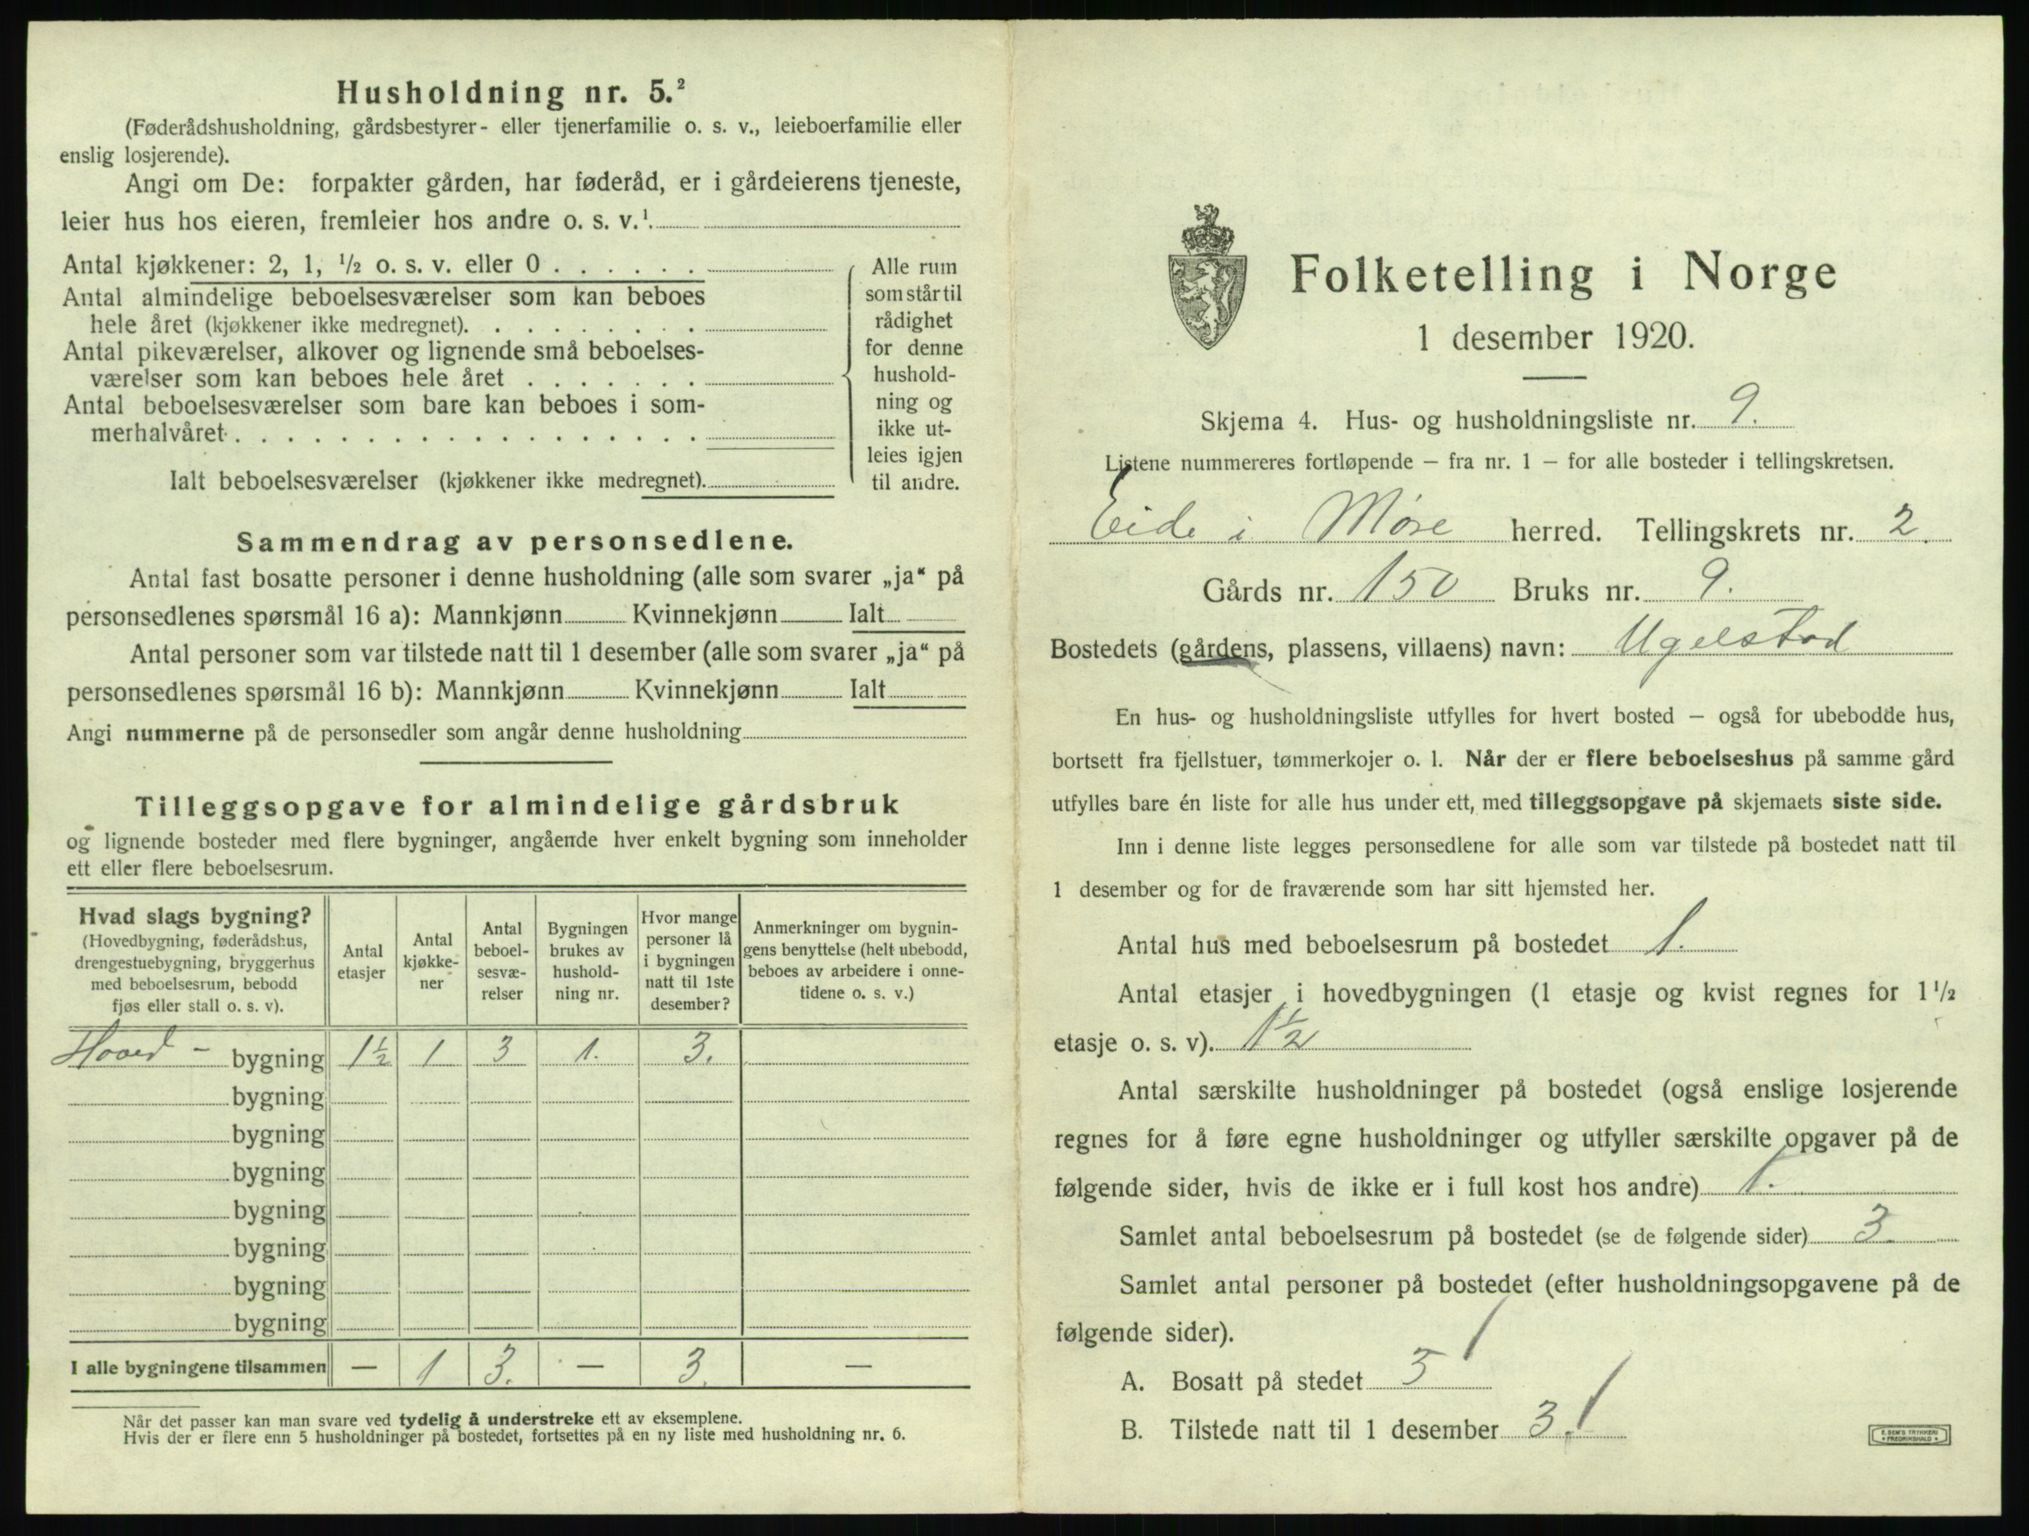 Husholdning nr. 5.²
(Føderådshusholdning, gårdsbestyrer- eller tjenerfamilie o. s. v., leieboerfamilie eller
enslig losjerende).
Angi om De: forpakter gården, har føderåd, er i gårdeierens tjeneste,
leier hus hos eieren, fremleier hos andre o. s. v.¹
Antal kjøkkener: 2, 1, ½ o. s. v. eller 0
Antal almindelige beboelsesværelser som kan beboes
hele året (kjøkkener ikke medregnet).
Antal pikeværelser, alkover og lignende små beboelses-
værelser som kan beboes hele året
Antal beboelsesværelser som bare kan beboes i som-
merhalvåret
Ialt beboelsesværelser (kjøkkener ikke medregnet).
Alle rum
som står til
rådighet
for denne
hushold-
ning og
ikke ut-
leies igjen
til andre.
Sammendrag av personsedlene.
Antal fast bosatte personer i denne husholdning (alle som svarer „ja“ på
personsedlenes spørsmål 16 a): Mannkjønn Kvinnekjønn Ialt
Antal personer som var tilstede natt til 1 desember (alle som svarer „ja“ på
personsedlenes spørsmål 16 b): Mannkjønn Kvinnekjønn Ialt
Angi nummerne på de personsedler som angår denne husholdning
Tilleggsopgave for almindelige gårdsbruk
og lignende bosteder med flere bygninger, angående hver enkelt bygning som inneholder
ett eller flere beboelsesrum.
Hvad slags bygning?
(Hovedbygning, føderådshus,
drengestuebygning, bryggerhus
med beboelsesrum, bebodd
fjøs eller stall o. s. v).
Antal
etasjer
Antal
kjøkke-
ner
Antal
beboel-
sesvæ-
relser
Bygningen
brukes av
hushold-
ning nr.
Hvor mange
personer lå
i bygningen
natt til 1ste
desember?
Anmerkninger om bygnin-
gens benyttelse (helt ubebodd,
beboes av arbeidere i onne-
tidene o. s. v.)
Hoved - bygning 1½ 1 3 1. 3.
bygning
bygning
bygning
bygning
bygning
bygning
bygning
I alle bygningene tilsammen — 1 3. — 3. —
Når det passer kan man svare ved tydelig å understreke ett av eksemplene.
Hvis der er flere enn 5 husholdninger på bostedet, fortsettes på en ny liste med husholdning nr. 6.
Folketelling i Norge
1 desember 1920.
Skjema 4. Hus- og husholdningsliste nr. 9.
Listene nummereres fortløpende — fra nr. 1 — for alle bosteder i tellingskretsen.
Eide i Møre herred. Tellingskrets nr. 2.
Gårds nr. 150 Bruks nr. 9.
Bostedets (gårdens, plassens, villaens) navn: Ugelstad
En hus- og husholdningsliste utfylles for hvert bosted — også for ubebodde hus,
bortsett fra fjellstuer, tømmerkojer o. l. Når der er flere beboelseshus på samme gård
utfylles bare én liste for alle hus under ett, med tilleggsopgave på skjemaets siste side.
Inn i denne liste legges personsedlene for alle som var tilstede på bostedet natt til
1 desember og for de fraværende som har sitt hjemsted her.
Antal hus med beboelsesrum på bostedet 1.
Antal etasjer i hovedbygningen (1 etasje og kvist regnes for 1½
etasje o. s. v). 1½
Antal særskilte husholdninger på bostedet (også enslige losjerende
regnes for å føre egne husholdninger og utfyller særskilte opgaver på de
følgende sider, hvis de ikke er i full kost hos andre) 1.
Samlet antal beboelsesrum på bostedet (se de følgende sider) 3.
Samlet antal personer på bostedet (efter husholdningsopgavene på de
følgende sider).
A. Bosatt på stedet
B. Tilstede natt til 1 desember 3.
E. SEM'S TRYKKERI
FREDRIKSHALD